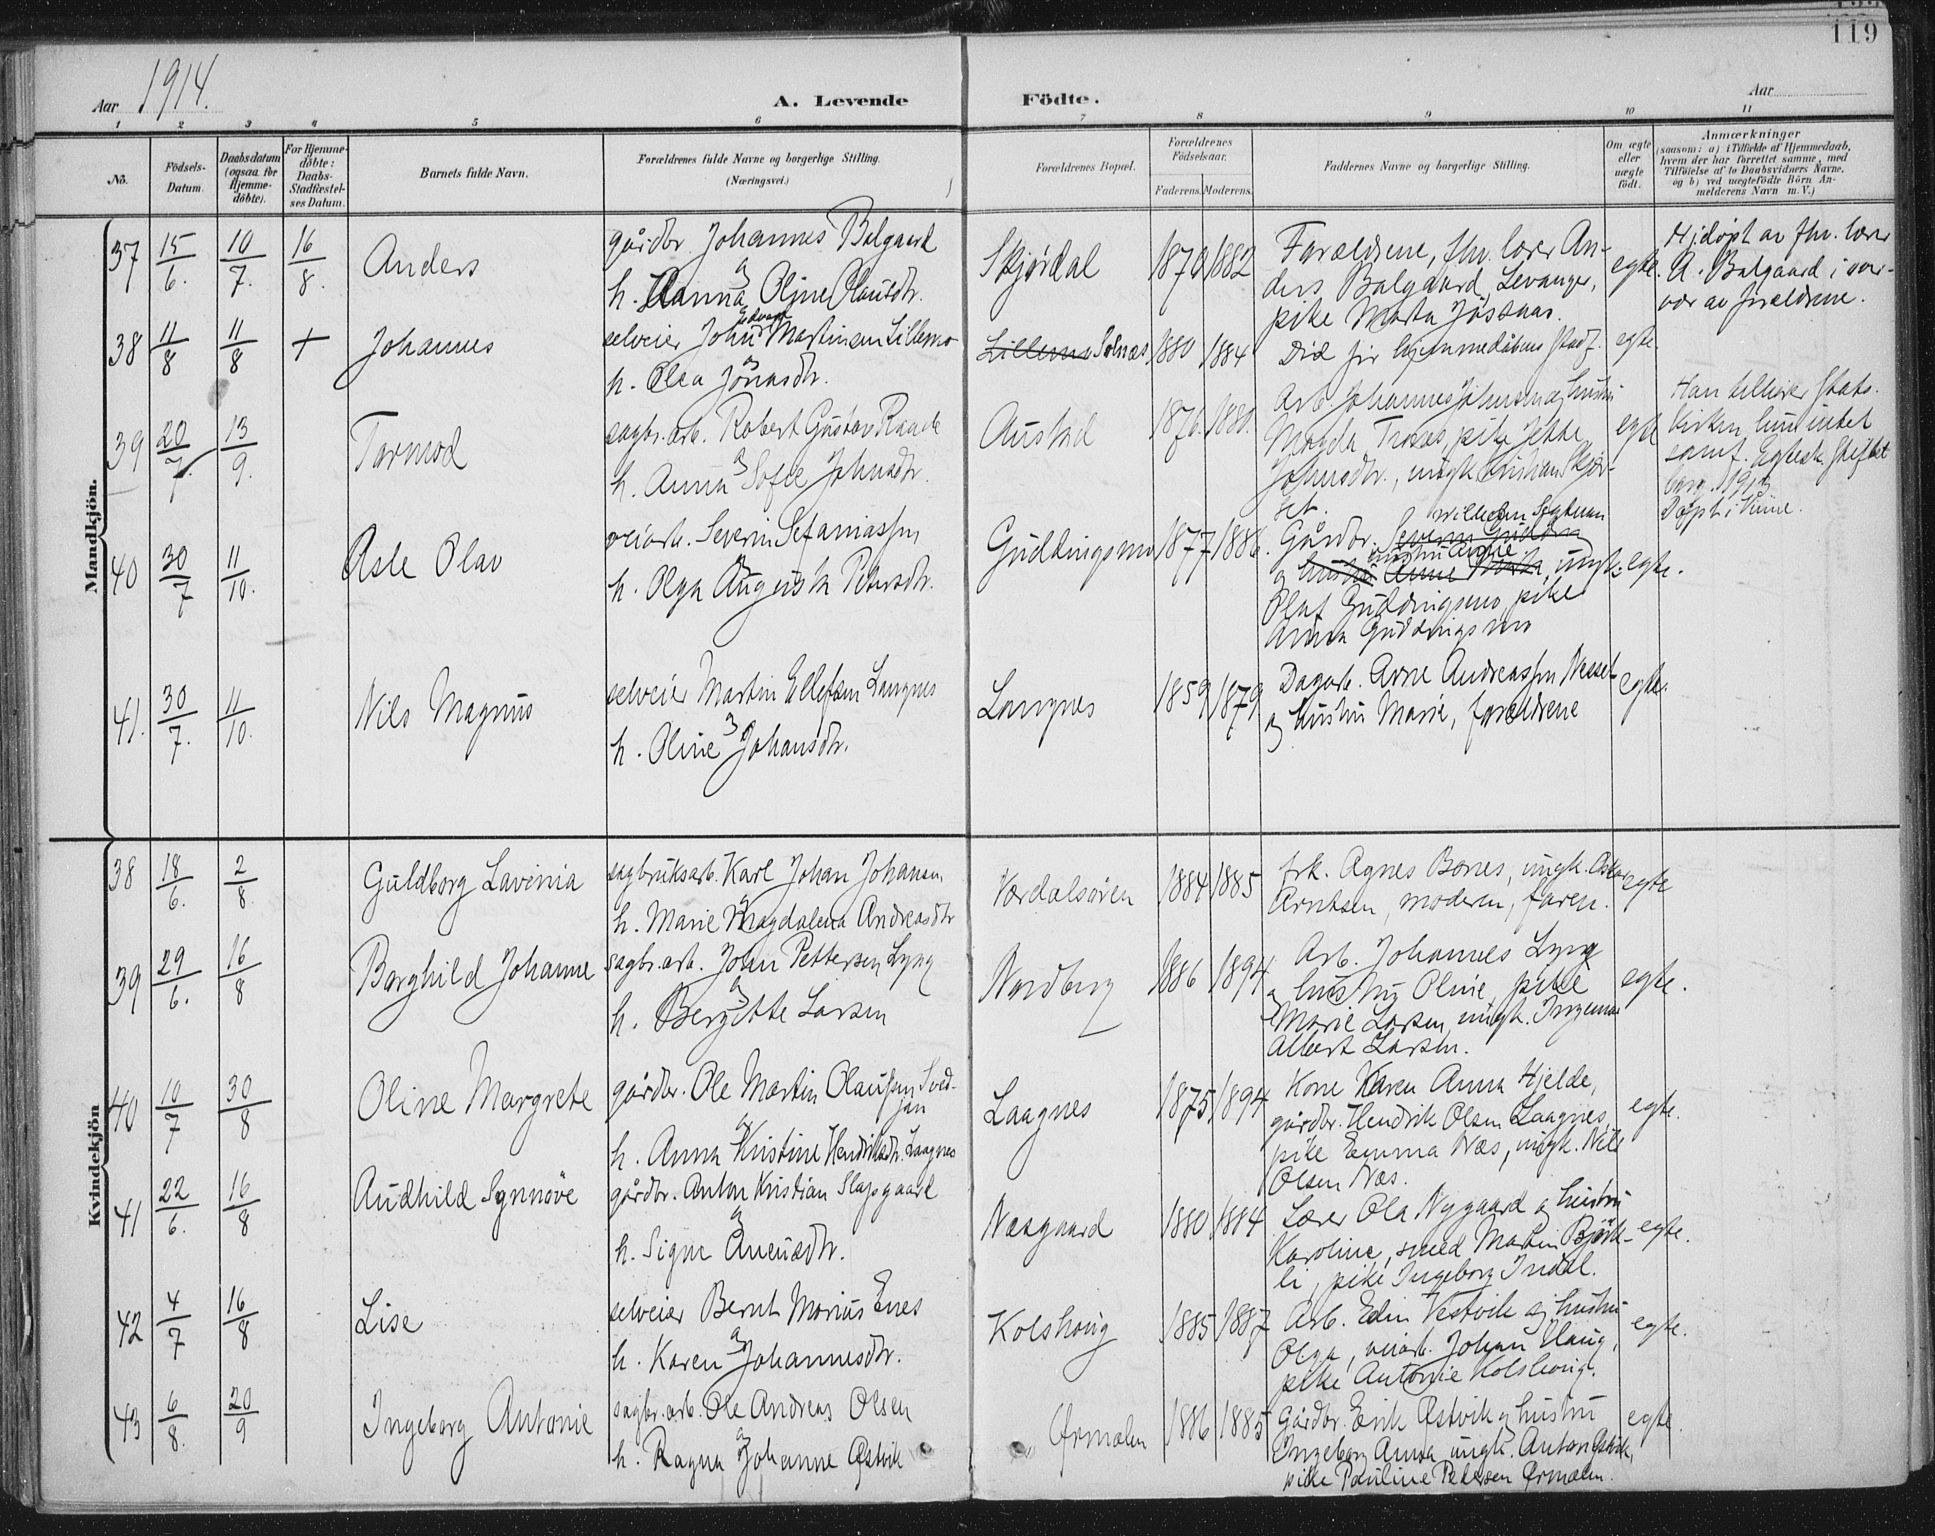 119
Aar 1914.
A. Levende Födte.
Aar
1 2 3 4 5 6 7 8 9 10 11
No.
Födsels-Datum.
Daabsdatum (ogsaa for Hjemme-döbte).
For Hjemme-döbte: Daabs-Stadfæstel-ses Datum.
Barnets fulde Navn.
Forældrenes fulde Navne og borgerlige Stilling.
(Næringsvei.)
Forældrenes Bopæl.
Forældrenes Födselsaar.
Faderens. Moderens.
Faddernes Navne og borgerlige Stilling.
Om ægte eller uægte födt.
Anmærkninger
(saasom: a) i Tilfælde af Hjemmedaab,
hvem der har forrettet samme, med
Tilföielse af to Daabsvidners Navne,
og b) ved uægtefödte Börn An-
melderens Navn m. V.)
Mandkjön.
37 15/6. 10/7. 16/8. Anders
gårdbr. Johannes Balgaard
h. Hanna Oline Olausdtr.
Skjördal 1870 1882
Forældrene, fhv. lærer An-
ders Balgaard, Levanger,
pike Marta Jösaas.
egte.
Hj.döpt av fhv. lærer
A. Balgaard i over-
vær av forældrene.
38 11/8 11/8 + Johannes
selveier Johan Edvard Martinsen Lillemo
h. Olea Jonasdtr.
Lillemo Solnæs 1880 1884
Död för hjemmedåbens stadf.
egte.
39 20/7. 13/9. Tormod
sagbr.arb. Robert Gustav Raade
h. Anna Sofie Johnsdtr.
Austad 1876. 1881.
Arb. Johannes Johnsen og hustru
Magda Trones, pike
Johnsdtr., ungk. Kristian Skjör-
set.
egte
Han tilhører Stats-
kirken, hun intet
samf. Egtesk. stiftet
borg. 1913
Döpt i kirke.
40 30/7 11/10. Asle Olav
veiarb. Severin Sefaniassen
h. Olga Augusta Petersdtr.
Guddingsmo 1877 1886.
Gårdbr. Wilhelm Sigtman
hustru Anne
og hustru Anne, ungk.
Olaf Guddingsmo, pike
Anna Guddingsmo
egte.
41. 30/7. 11/10. Nils Magnus
selveier Martin Ellefsen Langnes
h. Oline Johansdtr.
Langnes 1859 1879
Dagarb. Arne Andreassen Nesset
og hustru Marie, forældrene
egte.
Kvindekjön
38 18/6. 2/8. Guldborg Lavinia
sagbruksarb. Karl Johan Johansen
h. Marie Magdalena Andreasdtr
Værdalsören 1884 1885
frk. Agnes Bones, ungk. Oskar
Arntsen, moderen, faren.
egte
39 29/6. 16/8 Borghild Johanne
sagbr.arb. John Pettersen Lyng
h. Bergitte Larsen
Nordberg 1886 1894
Arb. Johannes Lyng
og hustru Oline, pike
Marie Larsen, ungk. Ingemar
Albert Larsen.
egte.
40 10/7 30/8 Oline Margrete
gårdbr. Ole Martin Olaussen Sved-
jan
h. Anna Kristine Henriksdtr. Laagnes
Laagnes 1875 1894
Kone Karen Anna Hjelde,
gårdbr. Hendrik Olsen Laagnes,
pike Emma Næs, ungk. Nils
Olsen Næs.
egte.
41 22/6. 16/8 Audhild Synnöve
gårdbr. Anton Kristian Slapgaard
h. Signe Aneusdtr.
Næsgaard 1880 1884
Lærer Ola Nygaard og hustru
Karoline, smed Martin Björk-
li, pike Ingeborg Indal.
egte.
42 4/7 16/8 Lise
selveier Bernt Marius Enes
h. Karen Johannesdtr.
Kolshaug 1885 1887
Arb. Edin Vestvik og hustru
Olga, veiarb. Johan Haug,
pike Antonie Kolshaug.
egte.
43 6/8. 20/9 Ingeborg Antonie
sagbr.arb. Ole Andreas Olsen
h. Ragna Johanne Østvik
Ørmelen 1886 1885
Gårdbr. Erik Østvik og hustru
Ingeborg Anna, ungk. Anton Østvik,
pike Pauline Petersen Ørmelen.
egte.